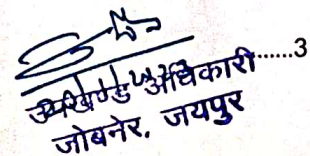 उपखण्ड अधिकारी......3
जोबनेर, जयपुर